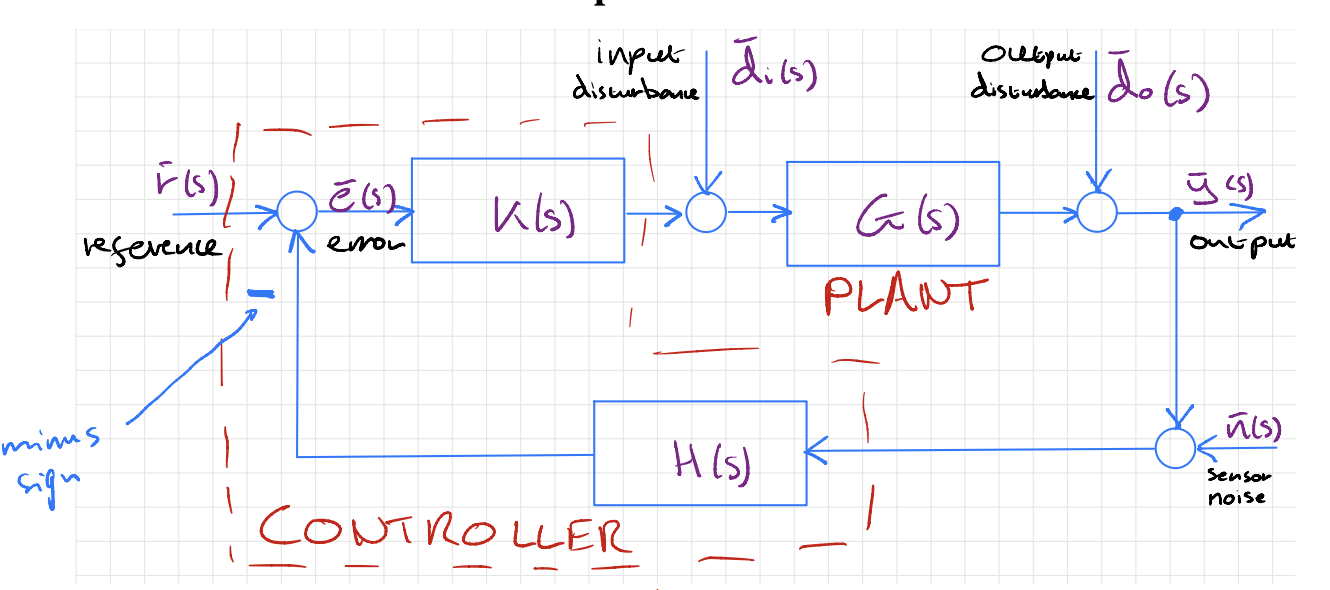 input
disturbance
d̄ᵢ(s)
output
disturbance
d̄ₒ(s)
r̄(s)
reference
ē(s)
error
K(s)
G(s)
PLANT
ȳ(s)
output
-
minus
sign
H(s)
n̄(s)
sensor
noise
CONTROLLER